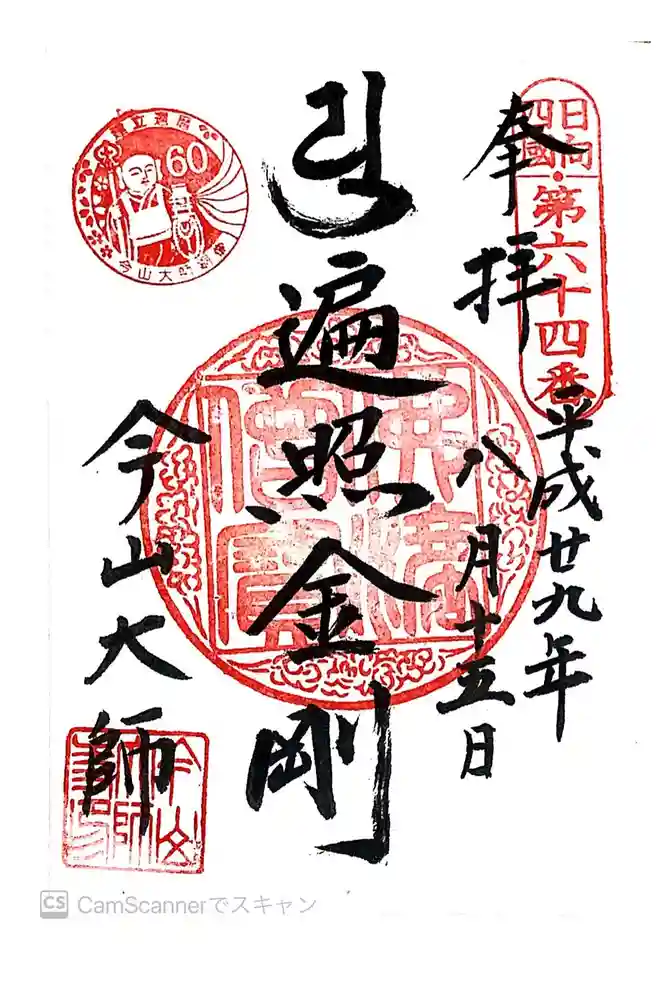 奉拝
日向
四國
・第六十四番
平成廿九年
八月十五日
遍照金剛
今山大師
60
今山大師
CS CamScannerでスキャン